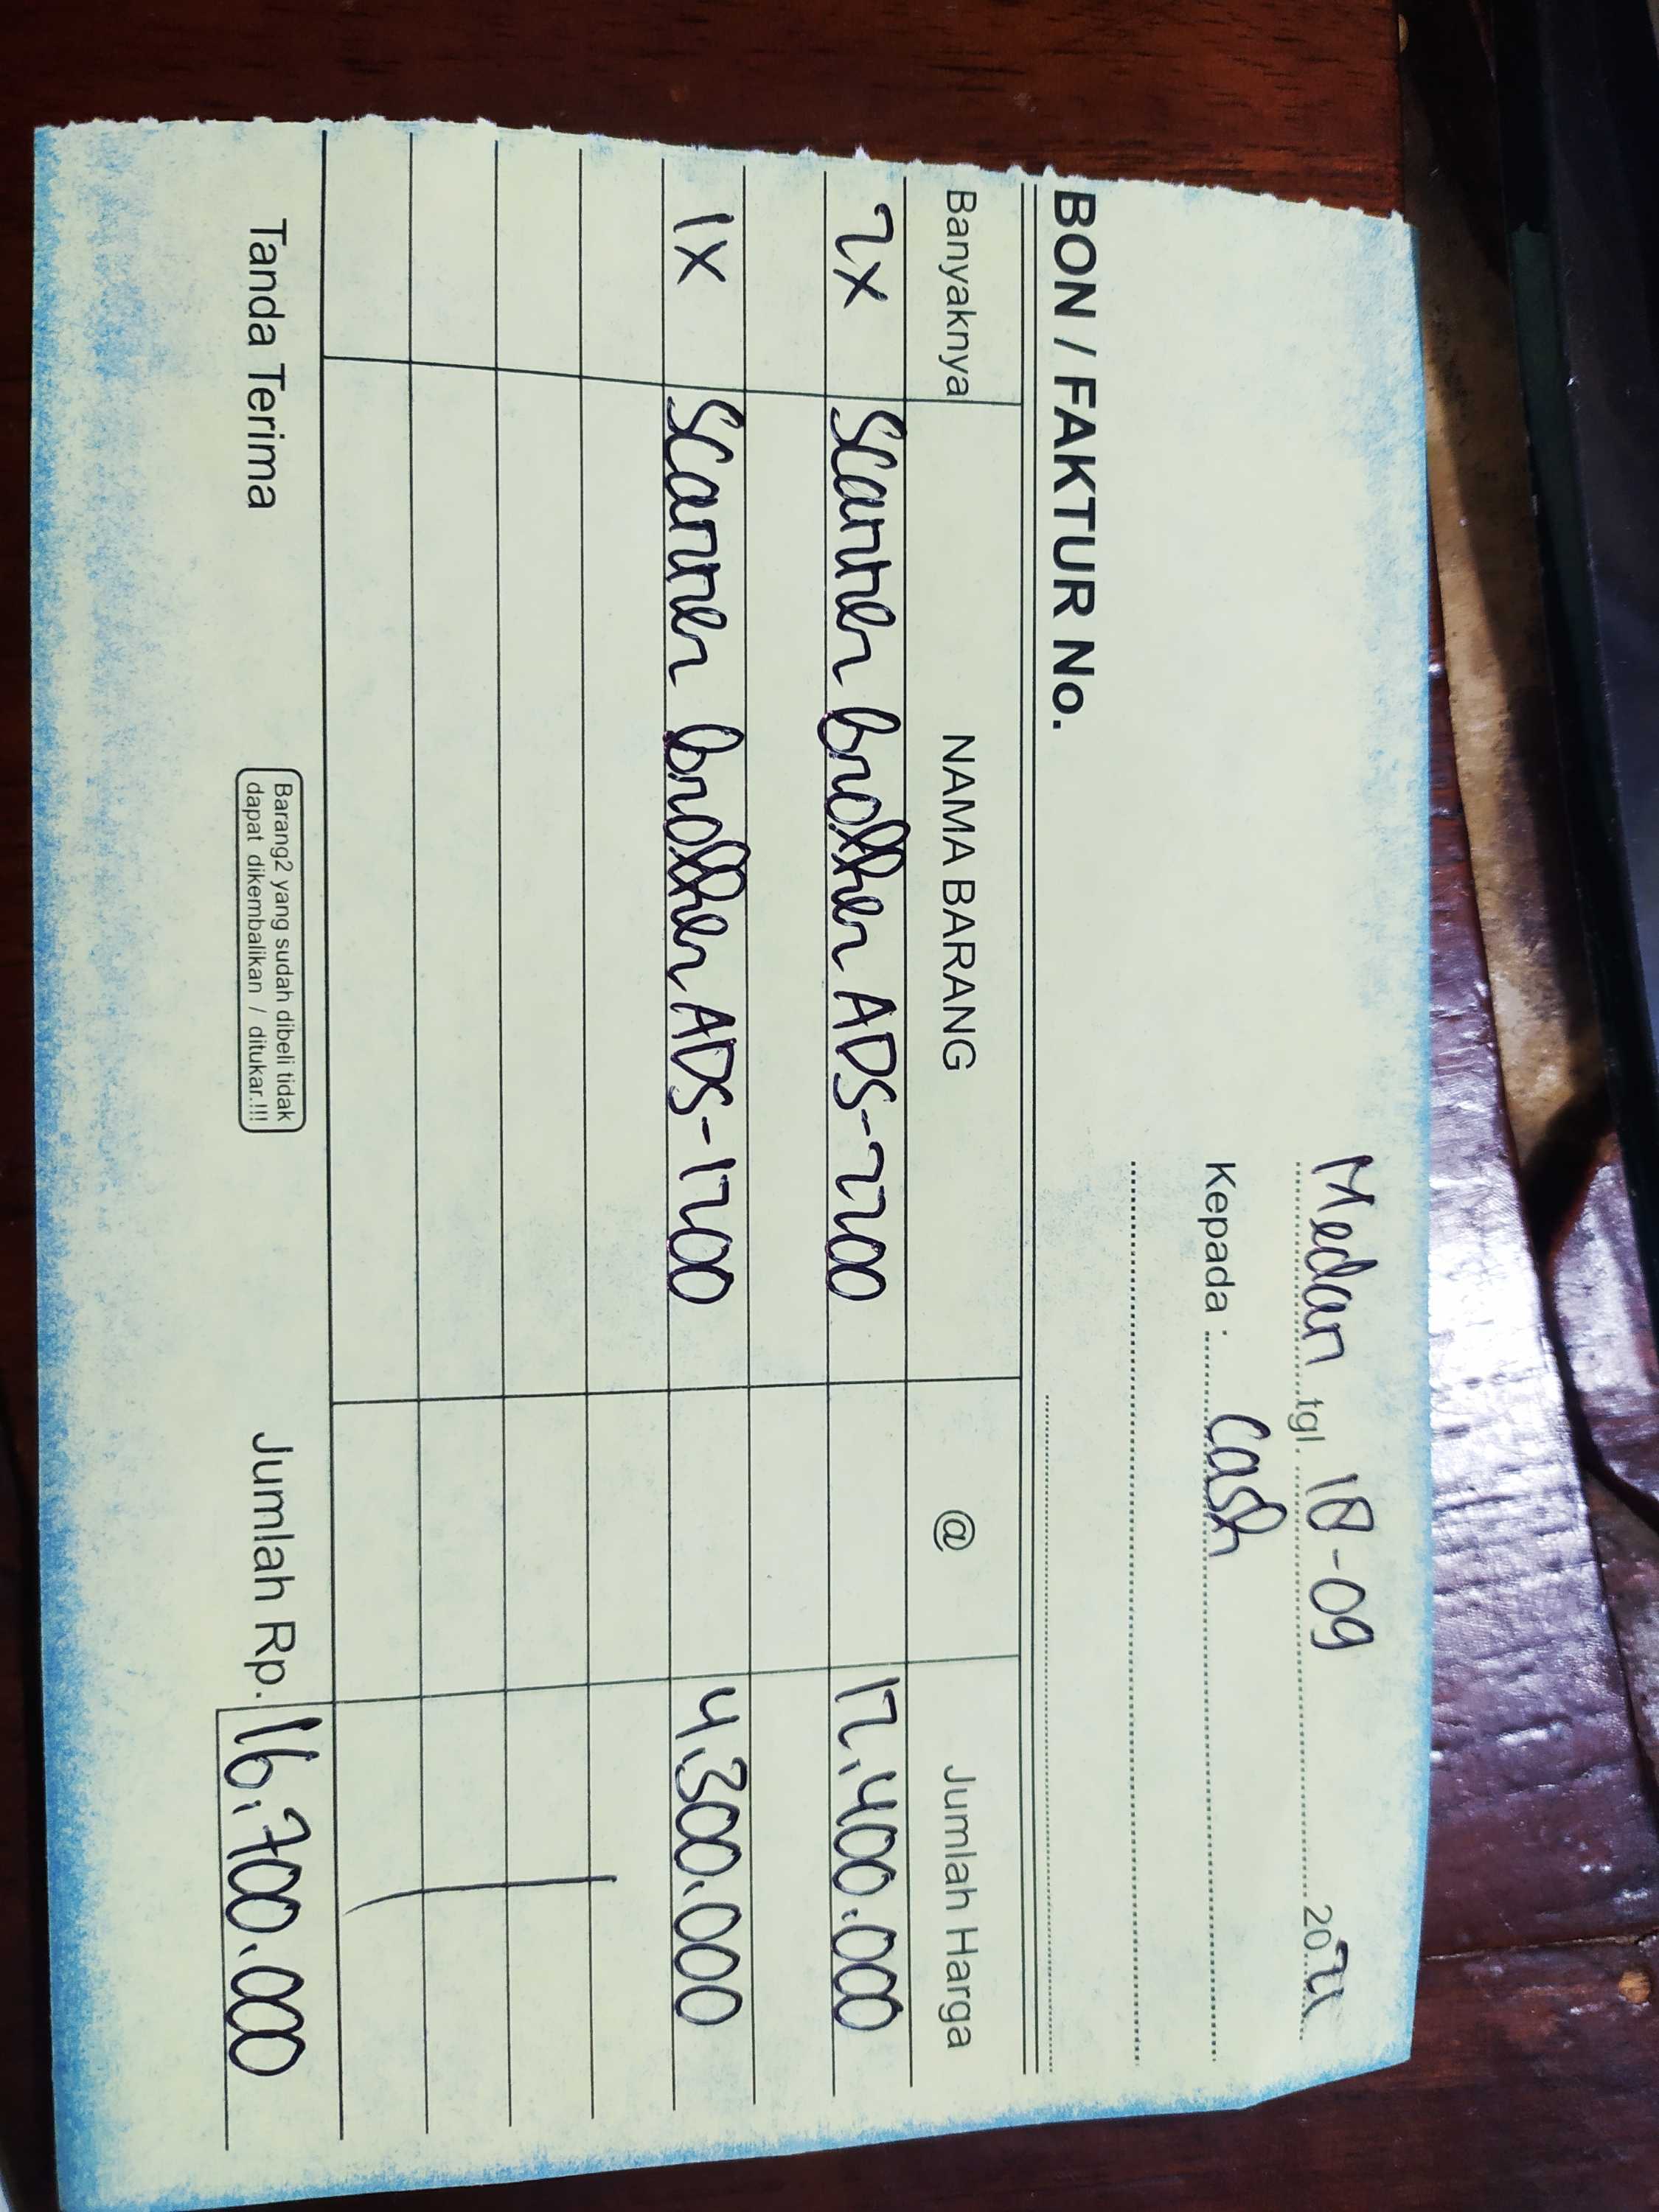 Medan tgl. 18-09 20
Kepada : Cash
BON / FAKTUR No.
Banyaknya NAMA BARANG @ Jumlah Harga
2x Scanner brother ADS-2200 12.400.000
1x Scanner brother ADS-1200 4.300.000
Tanda Terima
Barang2 yang sudah dibeli tidak
dapat dikembalikan / ditukar.!!!
Jumlah Rp. 16.700.000